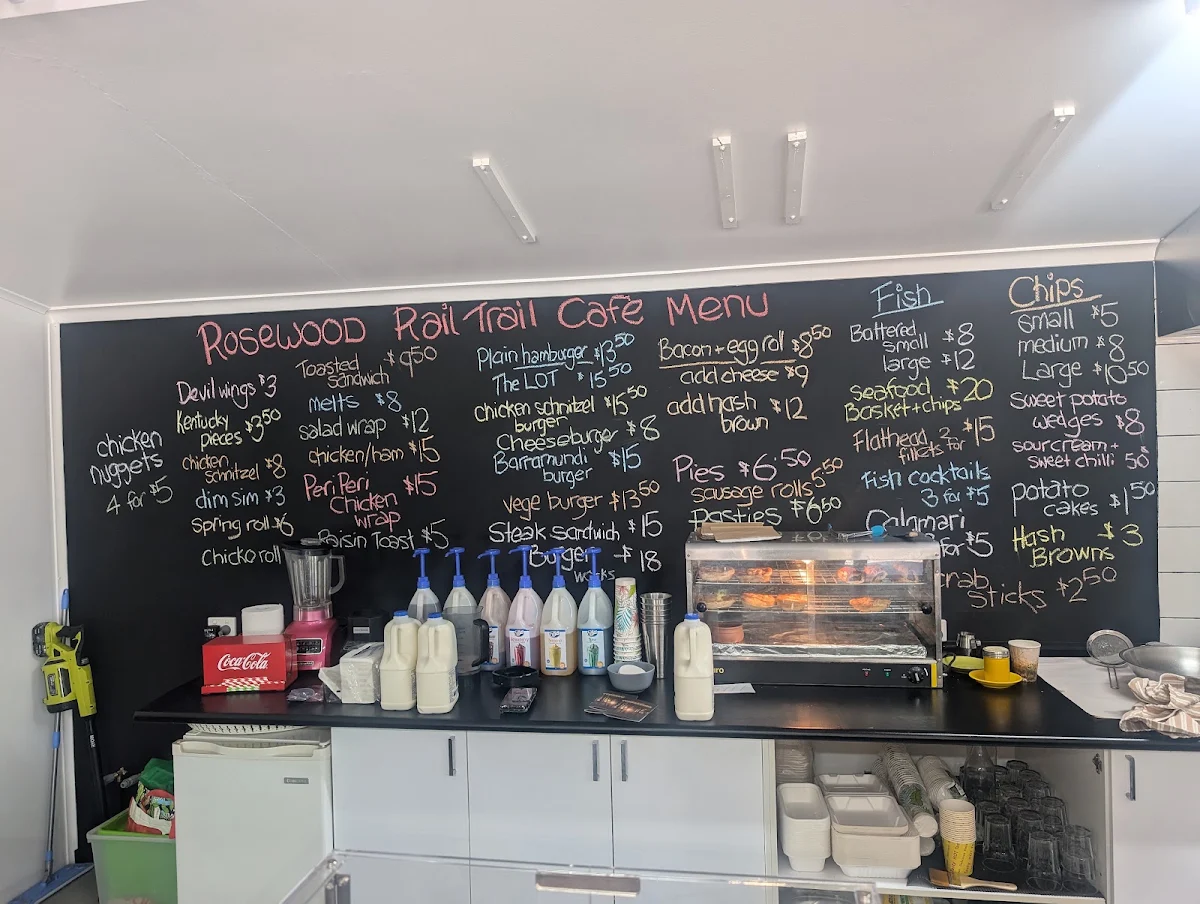 Rosewood Rail Trail Café Menu
chicken
nuggets
4 for $5
Devil wings $3
Kentucky
pieces $3.50
chicken
schnitzel $8
dim sim $3
spring roll $6
Chicko roll
Toasted $9.50
sandwich
melts $8
salad wrap $12
chicken/ham $15
Peri Peri
Chicken $15
wrap
Raisin Toast $5
Plain hamburger $13.50
The LOT $15.50
chicken schnitzel $15.50
burger
Cheeseburger $8
Barramundi $15
burger
vege burger $13.50
Steak sandwich $15
Burger $18
works
Bacon + egg roll $8.50
add cheese $9
add hash
brown $12
Pies $6.50
sausage rolls 5.50
Pasties $6.50
Fish
Battered
small $8
large $12
seafood $20
Basket + chips
Flathead 2 $15
fillets for
Fish cocktails
3 for $5
Calamari
for $5
crab
sticks $2.50
Chips
small $5
medium $8
Large $10.50
Sweet potato
wedges $8
sour cream +
sweet chilli 50
potato
cakes $1.50
Hash $3
Browns
Coca-Cola